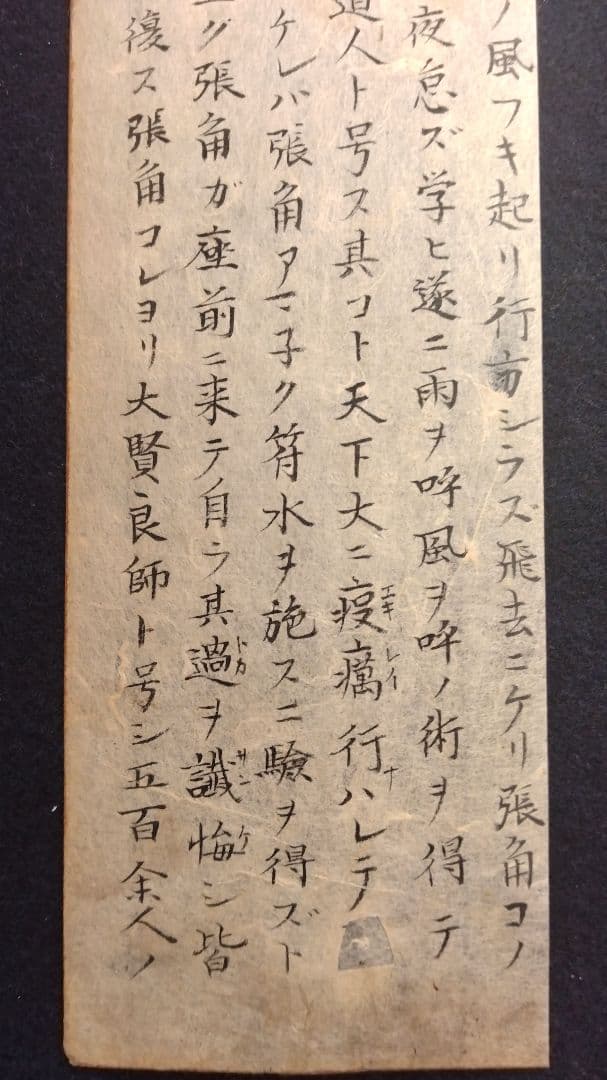 ノ風フキ起リ行方シラズ飛去ニケリ張角コノ
夜怠ズ学ヒ遂ニ雨ヲ呼風ヲ呼ノ術ヲ得テ
道人ト号ス其コト天下大ニ疫癘エキレイ行ナハレテ
ケレバ張角アマ子ク符水ヲ施スニ驗ヲ得ズト
グ張角ガ座前ニ来テ自ラ其過トガヲ懺サン悔ケシ皆
復ス張角コレヨリ大賢良師ト号シ五百余人ノ